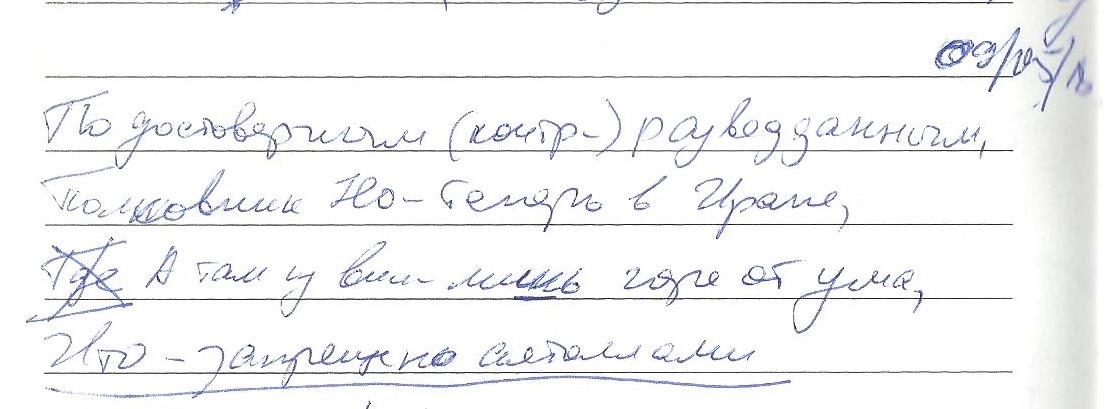 09/05/16
По достоверным (контр-) разведданным,
Полковник Но-Теперь в Иране,
Где А там из вин - лишь горе от ума,
И то - запрещено аятоллами